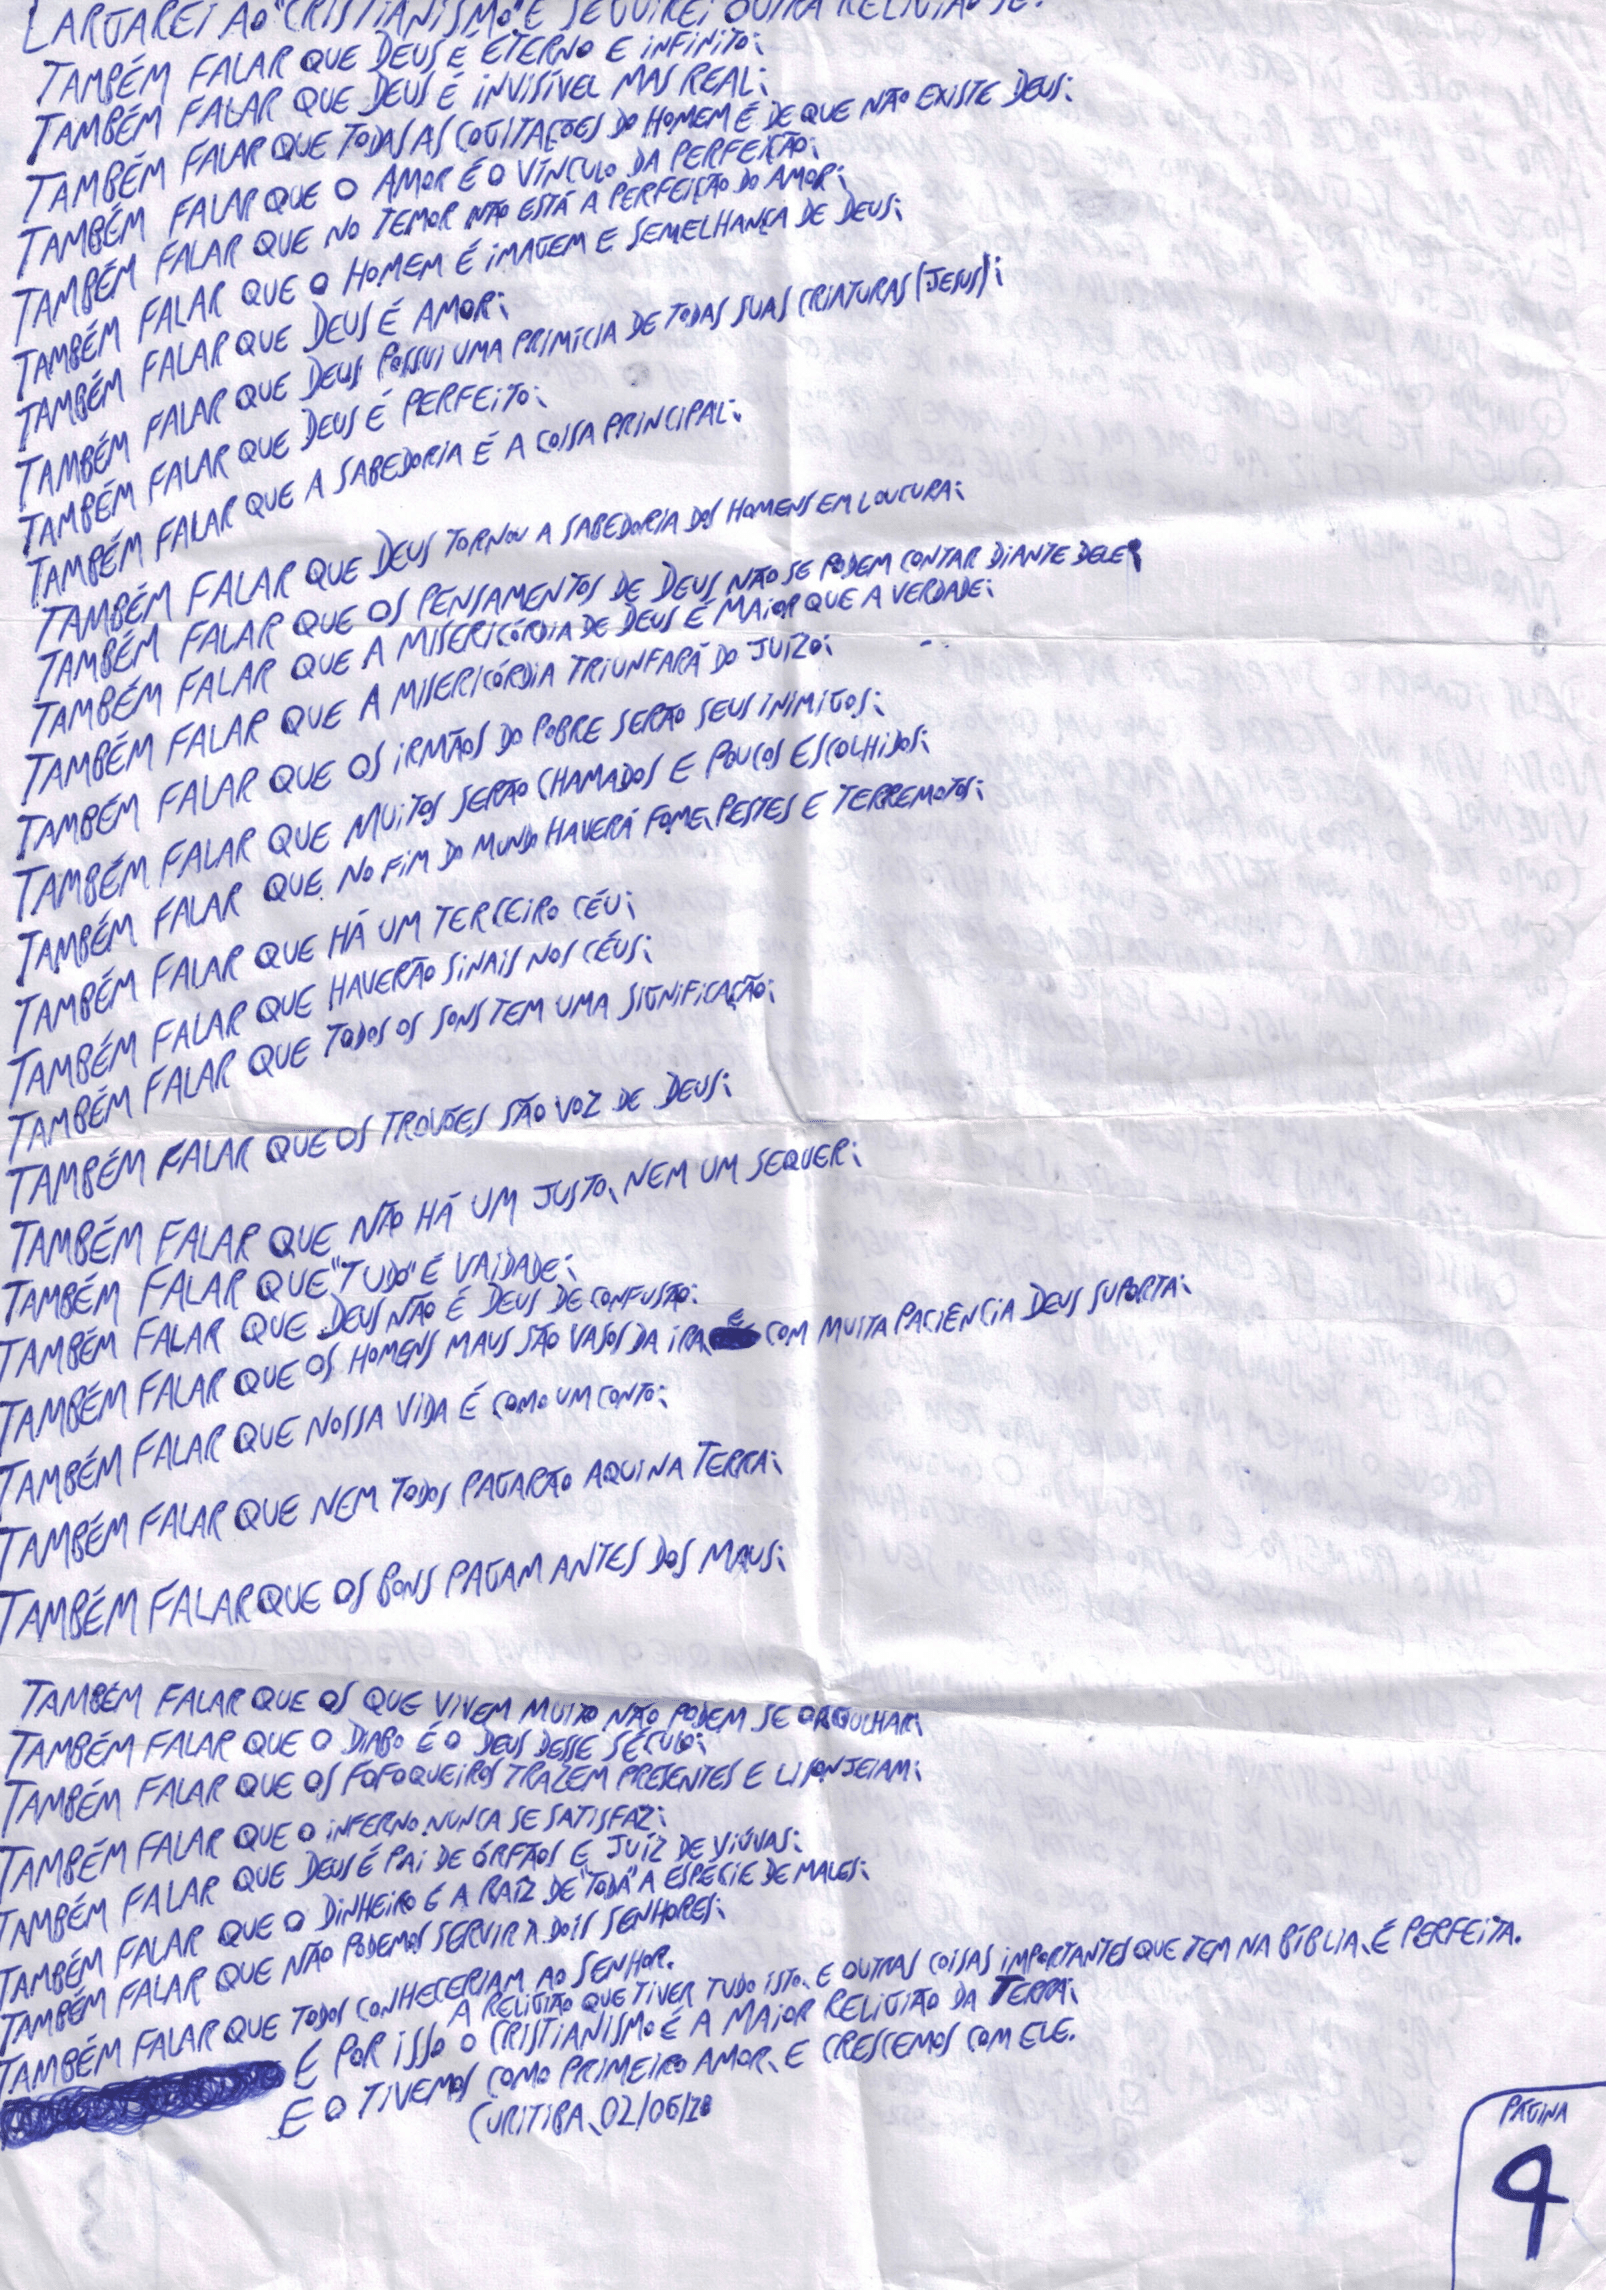 LARGAREI AO "CRISTIANISMO" E SEGUIREI OUTRA RELIGIÃO SE:
TAMBÉM FALAR QUE DEUS É ETERNO E INFINITO;
TAMBÉM FALAR QUE DEUS É INVISÍVEL MAS REAL;
TAMBÉM FALAR QUE TODAS AS COGITAÇÕES DO HOMEM É DE QUE NÃO EXISTE DEUS;
TAMBÉM FALAR QUE O AMOR É O VÍNCULO DA PERFEIÇÃO;
TAMBÉM FALAR QUE NO TEMOR NÃO ESTÁ A PERFEIÇÃO DO AMOR;
TAMBÉM FALAR QUE O HOMEM É IMAGEM E SEMELHANÇA DE DEUS;
TAMBÉM FALAR QUE DEUS É AMOR;
TAMBÉM FALAR QUE DEUS POSSUI UMA PRIMÍCIA DE TODAS SUAS CRIATURAS (JESUS);
TAMBÉM FALAR QUE DEUS É PERFEITO;
TAMBÉM FALAR QUE A SABEDORIA É A COISA PRINCIPAL;
TAMBÉM FALAR QUE DEUS TORNOU A SABEDORIA DOS HOMENS EM LOUCURA;
TAMBÉM FALAR QUE OS PENSAMENTOS DE DEUS NÃO SE PODEM CONTAR DIANTE DELE;
TAMBÉM FALAR QUE A MISERICÓRDIA DE DEUS É MAIOR QUE A VERDADE;
TAMBÉM FALAR QUE A MISERICÓRDIA TRIUNFARÁ DO JUÍZO;
TAMBÉM FALAR QUE OS IRMÃOS DO POBRE SERÃO SEUS INIMIGOS;
TAMBÉM FALAR QUE MUITOS SERÃO CHAMADOS E POUCOS ESCOLHIDOS;
TAMBÉM FALAR QUE NO FIM DO MUNDO HAVERÁ FOME, PESTES E TERREMOTOS;
TAMBÉM FALAR QUE HÁ UM TERCEIRO CÉU;
TAMBÉM FALAR QUE HAVERÃO SINAIS NOS CÉUS;
TAMBÉM FALAR QUE TODOS OS SONS TEM UMA SIGNIFICAÇÃO;
TAMBÉM FALAR QUE OS TROVÕES SÃO VOZ DE DEUS;
TAMBÉM FALAR QUE NÃO HÁ UM JUSTO, NEM UM SEQUER;
TAMBÉM FALAR QUE "TUDO" É VAIDADE;
TAMBÉM FALAR QUE DEUS NÃO É DEUS DE CONFUSÃO;
TAMBÉM FALAR QUE OS HOMENS MAUS SÃO VASOS DA IRA, E COM MUITA PACIÊNCIA DEUS SUPORTA;
TAMBÉM FALAR QUE NOSSA VIDA É COMO UM CONTO;
TAMBÉM FALAR QUE NEM TODOS PAGARÃO AQUI NA TERRA;
TAMBÉM FALAR QUE OS BONS PAGAM ANTES DOS MAUS;
TAMBÉM FALAR QUE OS QUE VIVEM MUITO NÃO PODEM SE ORGULHAR;
TAMBÉM FALAR QUE O DIABO É O DEUS DESSE SÉCULO;
TAMBÉM FALAR QUE OS FOFOQUEIROS TRAZEM PRESENTES E LISONJEIAM;
TAMBÉM FALAR QUE O INFERNO NUNCA SE SATISFAZ;
TAMBÉM FALAR QUE DEUS É PAI DE ÓRFÃOS E JUÍZ DE VIÚVAS;
TAMBÉM FALAR QUE O DINHEIRO É A RAÍZ DE "TODA" A ESPÉCIE DE MALES;
TAMBÉM FALAR QUE NÃO PODEMOS SERVIR A DOIS SENHORES;
TAMBÉM FALAR QUE TODOS CONHECERIAM AO SENHOR.
A RELIGIÃO QUE TIVER TUDO ISTO, E OUTRAS COISAS IMPORTANTES QUE TEM NA BÍBLIA, É PERFEITA.
E POR ISSO O CRISTIANISMO É A MAIOR RELIGIÃO DA TERRA;
E O TIVEMOS COMO PRIMEIRO AMOR, E CRESCEMOS COM ELE.
CURITIBA, 02/06/18
PÁGINA
4